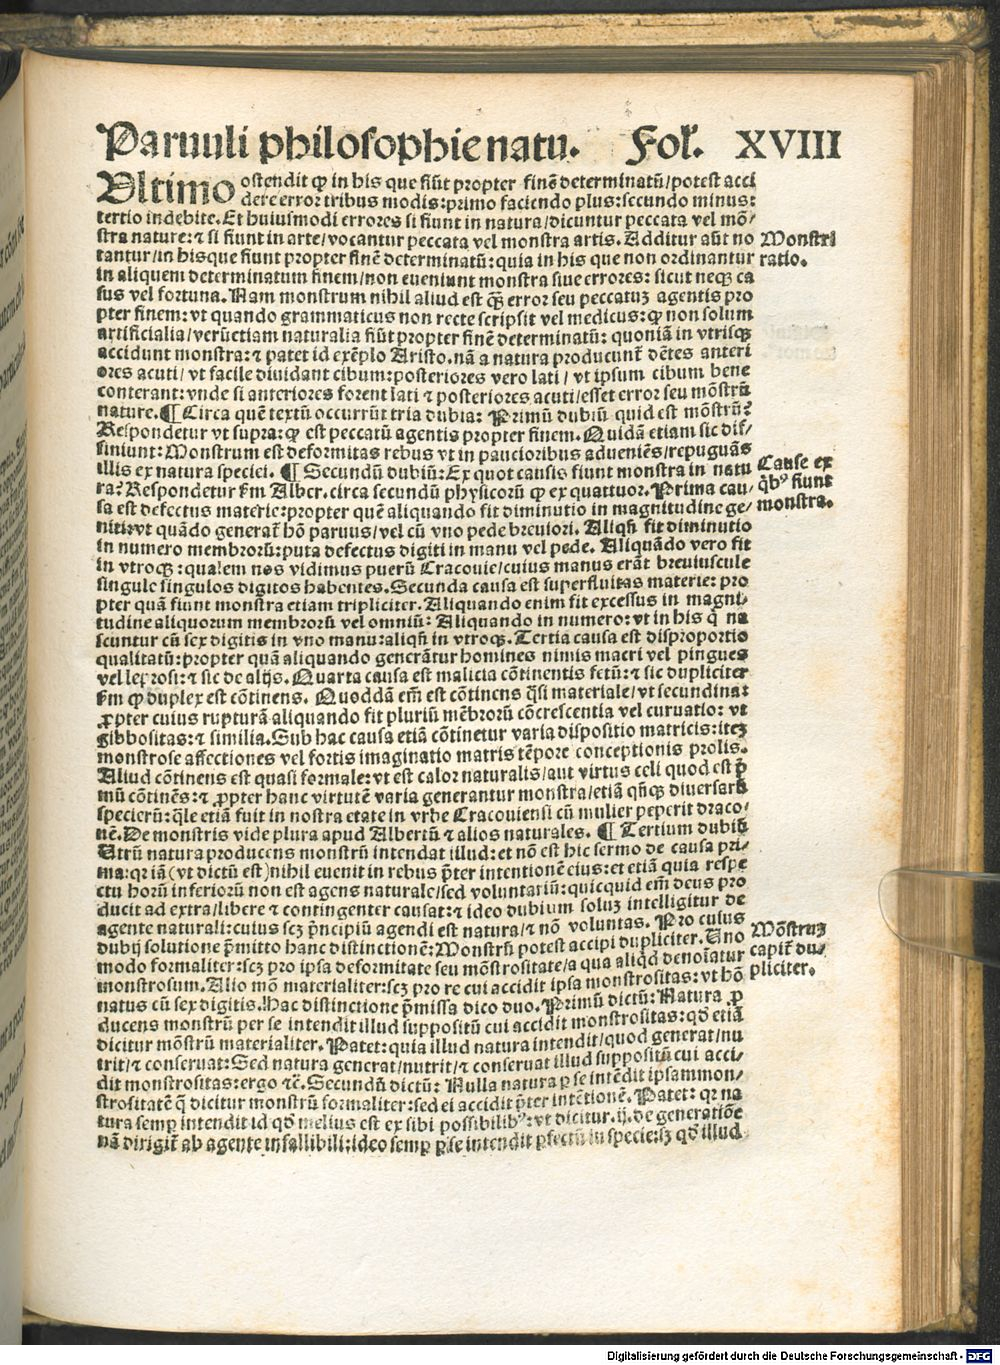 Paruuli philosophie natu. Fol. XVIII
Ultimo ostendit ꝙ in his que fiūt propter finē determinatū/potest acci
dere error tribus modis:primo faciendo plus:secundo minus:
tertio indebite. Et huiusmodi errores si fiunt in natura/dicuntur peccata vel mō/
stra nature: ⁊ si fiunt in arte/vocantur peccata vel monstra artis. Additur aūt no
tantur/in hisque fiunt propter finē determinatū: quia in his que non ordinantur
in aliquem determinatum finem/non eueniunt monstra siue errores: sicut neqꝫ ca
sus vel fortuna. Nam monstrum nihil aliud est qꝫ error seu peccatuꝫ agentis pro
pter finem: vt quando grammaticus non recte scripsit vel medicus: ꝙ non solum
artificialia/verūetiam naturalia fiūt propter finē determinatū: quoniā in vtrisqꝫ
accidunt monstra: ⁊ patet id exēplo Aristo. nā a natura producunt̄ dētes anteri
ores acuti/ vt facile diuidant cibum: posteriores vero lati / vt ipsum cibum bene
conterant: vnde si anteriores forent lati ⁊ posteriores acuti/esset error seu mōstrū
nature. ¶ Circa quē textū occurrūt tria dubia: Primū dubiū quid est mōstrū?
Respondetur vt supra: ꝙ est peccatū agentis propter finem. Quidā etiam sic dif/
finiunt: Monstrum est deformitas rebus vt in paucioribus adueniēs/repugnās
illis ex natura speciei. ¶ Secundū dubiū: Ex quot causis fiunt monstra in natu
ra? Respondetur ẜm Alber. circa secundū physicorū ꝙ ex quattuor. Prima cau/
sa est defectus materie: propter quē aliquando fit diminutio in magnitudine ge/
niti: vt quādo generat̄ hō paruus/vel cū vno pede breuiori. Aliqn̄ fit diminutio
in numero membrorū: puta defectus digiti in manu vel pede. Aliquādo vero fit
in vtroqꝫ: qualem nos vidimus puerū Cracouie/cuius manus erāt breuiuscule
singule singulos digitos habentes. Secunda causa est superfluitas materie: pro
pter quā fiunt monstra etiam tripliciter. Aliquando enim fit excessus in magni/
tudine aliquorum membrorū vel omniū: Aliquando in numero: vt in his q̄ na
scuntur cū sex digitis in vno manu: aliqn̄ in vtroqꝫ. Tertia causa est disproportio
qualitatū: propter quā aliquando generātur homines nimis macri vel pingues
vel leprosi: ⁊ sic de alijs. Quarta causa est malicia cōtinentis fetū: ⁊ sic dupliciter
ẜm ꝙ duplex est cōtinens. Quoddā em̄ est cōtinens q̄si materiale/vt secundina:
ꝓpter cuius rupturā aliquando fit pluriū mēbrorū cōcrescentia vel curuatio: vt
gibbositas: ⁊ similia. Sub hac causa etiā cōtinetur varia dispositio matricis: iteꝫ
monstrose affectiones vel fortis imaginatio matris tēpore conceptionis prolis.
Aliud cōtinens est quasi formale: vt est calor naturalis/aut virtus celi quod est p̄
mū cōtinēs: ⁊ ꝓpter hanc virtutē varia generantur monstra/etiā qn̄qꝫ diuersarū
specierū: q̄le etiā fuit in nostra etate in vrbe Cracouiensi cū mulier peperit draco/
nē. De monstris vide plura apud Albertū ⁊ alios naturales. ¶ Tertium dubiū
Utrū natura producens monstrū intendat illud: et nō est hic sermo de causa pri/
ma: qr iā (vt dictū est) nihil euenit in rebus p̄ter intentionē eius: et etiā quia respe
ctu horū inferiorū non est agens naturale/sed voluntariū: quicquid em̄ deus pro
ducit ad extra/libere ⁊ contingenter causat: ⁊ ideo dubium soluꝫ intelligitur de
agente naturali: cuius scꝫ p̄ncipiū agendi est natura/⁊ nō voluntas. Pro cuius
dubij solutione p̄mitto hanc distinctionē: Monstrū potest accipi dupliciter. Uno
modo formaliter: scꝫ pro ipsa deformitate seu mōstrositate/a qua aliqd̄ denoīatur
monstrosum. Alio mō materialiter: scꝫ pro re cui accidit ipsa monstrositas: vt hō
natus cū sex digitis. Hac distinctione p̄missa dico duo. Primū dictū: Natura ꝓ
ducens monstrū per se intendit illud suppositū cui accidit monstrositas: qd̄ etiā
dicitur mōstrū materialiter. Patet: quia illud natura intendit/quod generat/nu
trit/⁊ conseruat: Sed natura generat/nutrit/⁊ conseruat illud suppositū cui acci/
dit monstrositas: ergo ⁊c̄. Secundū dictū: Nulla natura ꝑ se intēdit ipsam mon/
strositatē q̄ dicitur monstrū formaliter: sed ei accidit p̄ter intētionē. Patet: qr na
tura semꝑ intendit id qd̄ melius est ex sibi possibilibꝰ: vt dicitur .ij. de generatiōe
nā dirigit̄ ab agente infallibili: ideo semꝑ ꝑ se intendit ꝑfectū in specie: sꝫ qd̄ illud
Monstri
ratio.
Cause ex
qͥbꝰ fiunt
monstra.
Mōstruꝫ
capit̄ du/
pliciter.
Digitalisierung gefördert durch die Deutsche Forschungsgemeinschaft - DFG